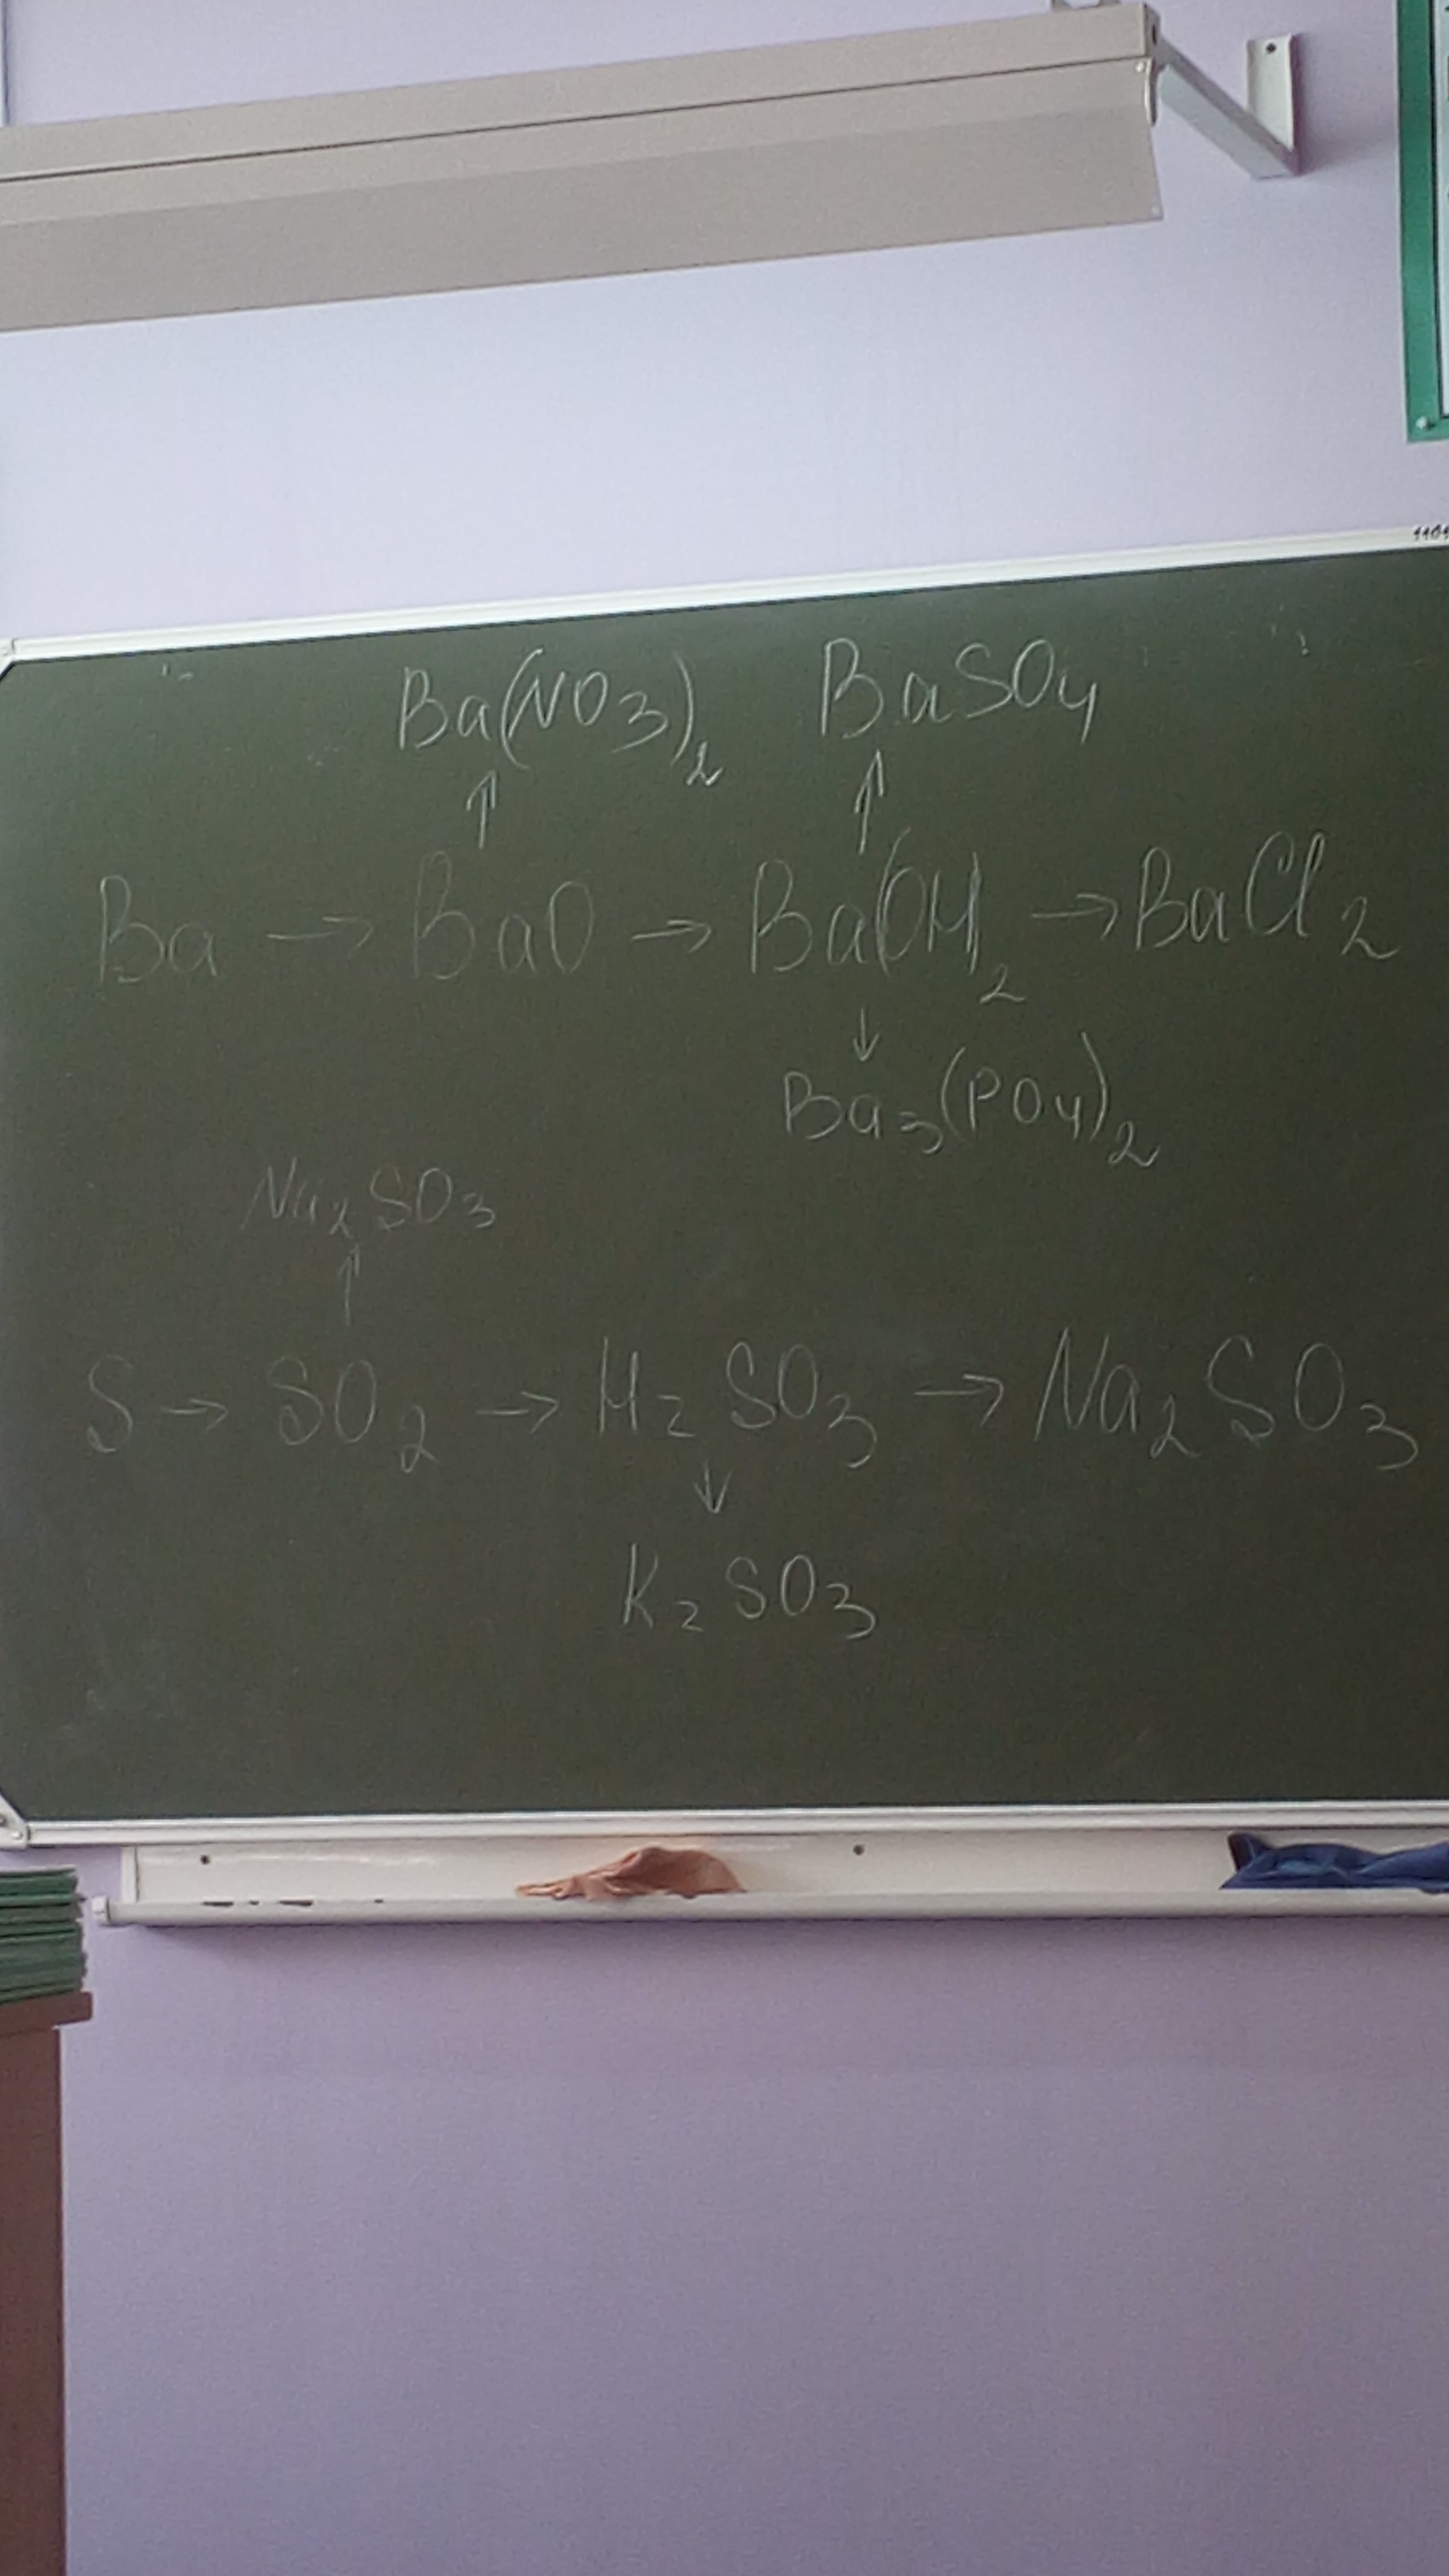 1101
Ba(NO₃)₂ BaSO₄
↑ ↑
Ba → BaO → Ba(OH)₂ → BaCl₂
↓
Ba₃(PO₄)₂
Na₂SO₃
↑
S → SO₂ → H₂SO₃ → Na₂SO₃
↓
K₂SO₃